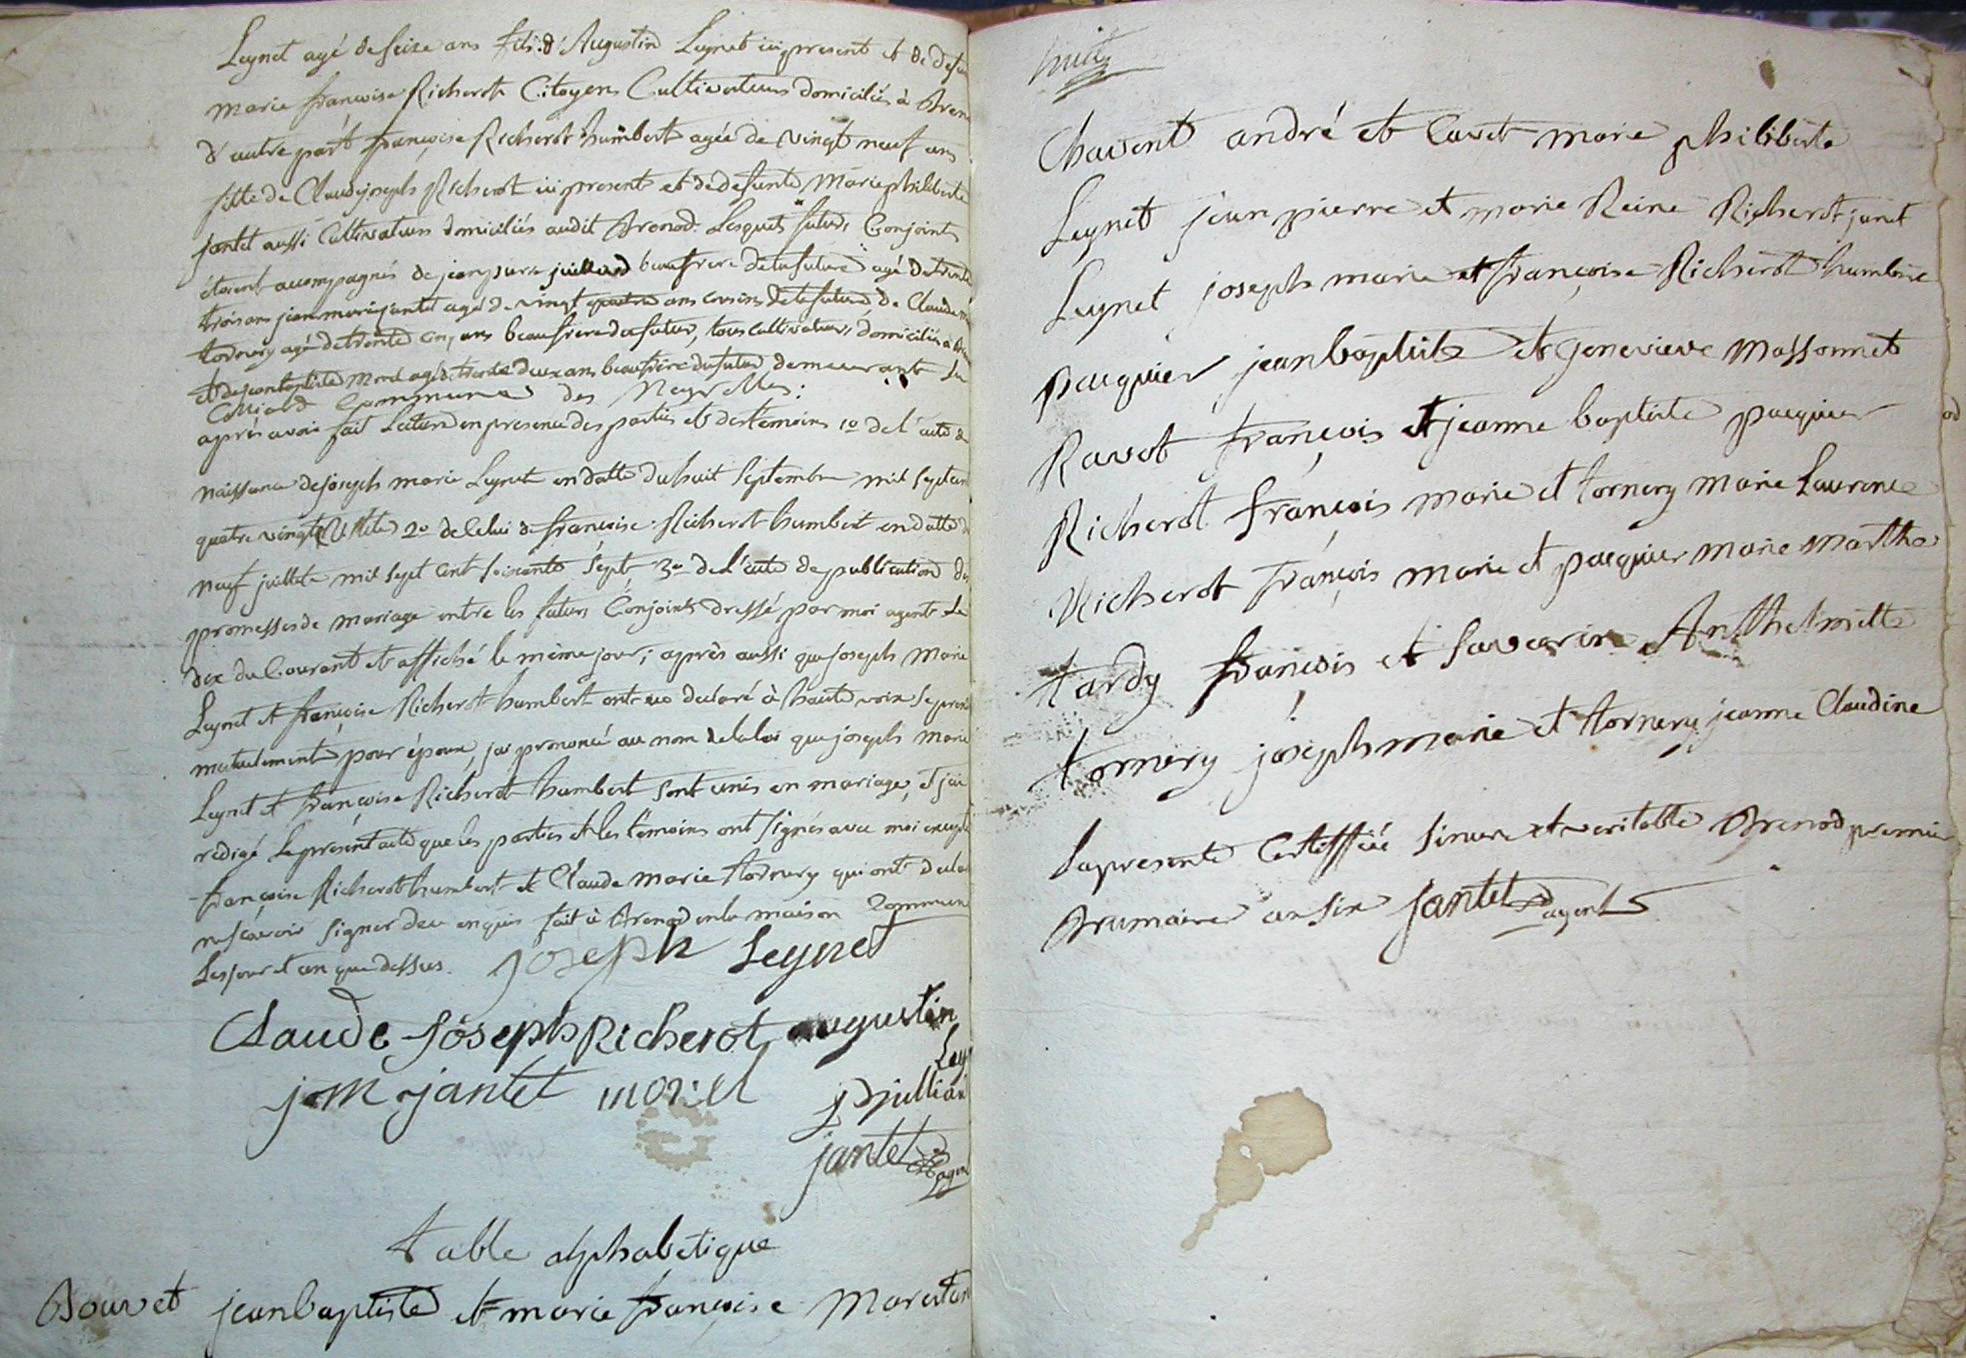 Leynet agé de seize ans fils d'Augustin Leynet ici present et de defun
marie françoise Richerot Citoyens Cultivateurs domiciliés à Breno
d'autre part françoise Richerot humbert agée de vingt neuf ans
fille de Claudejoseph Richerot ici present et de defunte Mariephiliberte
jantet aussi Cultivateurs domiciliés audit Brenod. Lesquels futurs Conjoints
étoient accompagnés de jeanpierre juilliard beaufrere de la future agé de trente
trois ans jeanmarie jantet agé de vingt quatre ans cousin de la future, de Claude
tornery agé de trente cinq ans beaufrere du futur, tous cultivateurs, domiciliés à
et de jeanbaptiste Morel agé de trente deux ans beaufrere du futur demeurant
Commune des Neyrolles:
après avoir fait Lecture en presence des parties et des temoins 1o de l'acte de
naissance de joseph marie Leynet en datte du huit Septembre mil Septcent
quatre vingt 2o de Celui de françoise Richerot humbert en datte du
neuf juillete mil Sept Cent Soixante Sept 3o de l'acte de publication des
promesses de mariage entre les futurs Conjoints dressé par moi agent Le
dix du Courant et affiché le même jour; après aussi que joseph Marie
Leynet et françoise Richerot humbert ont eu declaré à haute voix se prendre
mutuelement pour époux, jai prononcé au nom de la loi que joseph Marie
Leynet et françoise Richerot humbert sont unis en mariage, et jai
redigé Le present acte que les parties et les temoins ont signés avec moi excepté
françoise Richerot humbert et Claude marie tornery qui ont declaré
ne sçavoir signer de ce enquis fait à Brenod en la maison Commune
Les jour et an que dessus. joseph Leynet
Claude joseph Richerot augustin
Ley
j m jantet morel jp juilliar
jantet agent
table alphabetique
Bouvet jeanbaptiste et marie françoise
huit
Chavent andré et Cavet marie philiberte
Leynet jean pierre et marie Reine Richerot janet
Leynet joseph marie et françoise Richerot humbert
pacquier jeanbaptiste et genevieve Massonnet
Ravot françois et jeanne baptiste pacquier
Richerot françois marie et tornery marie Laurence
Richerot françois marie et pacquier marie marthe
tardy françois et Savarin Anthelmette
tornery joseph marie et tornery jeanne Claudine
La presente Certiffiée Sincere et veritable Brenod premier
Brumaire an six jantet agent